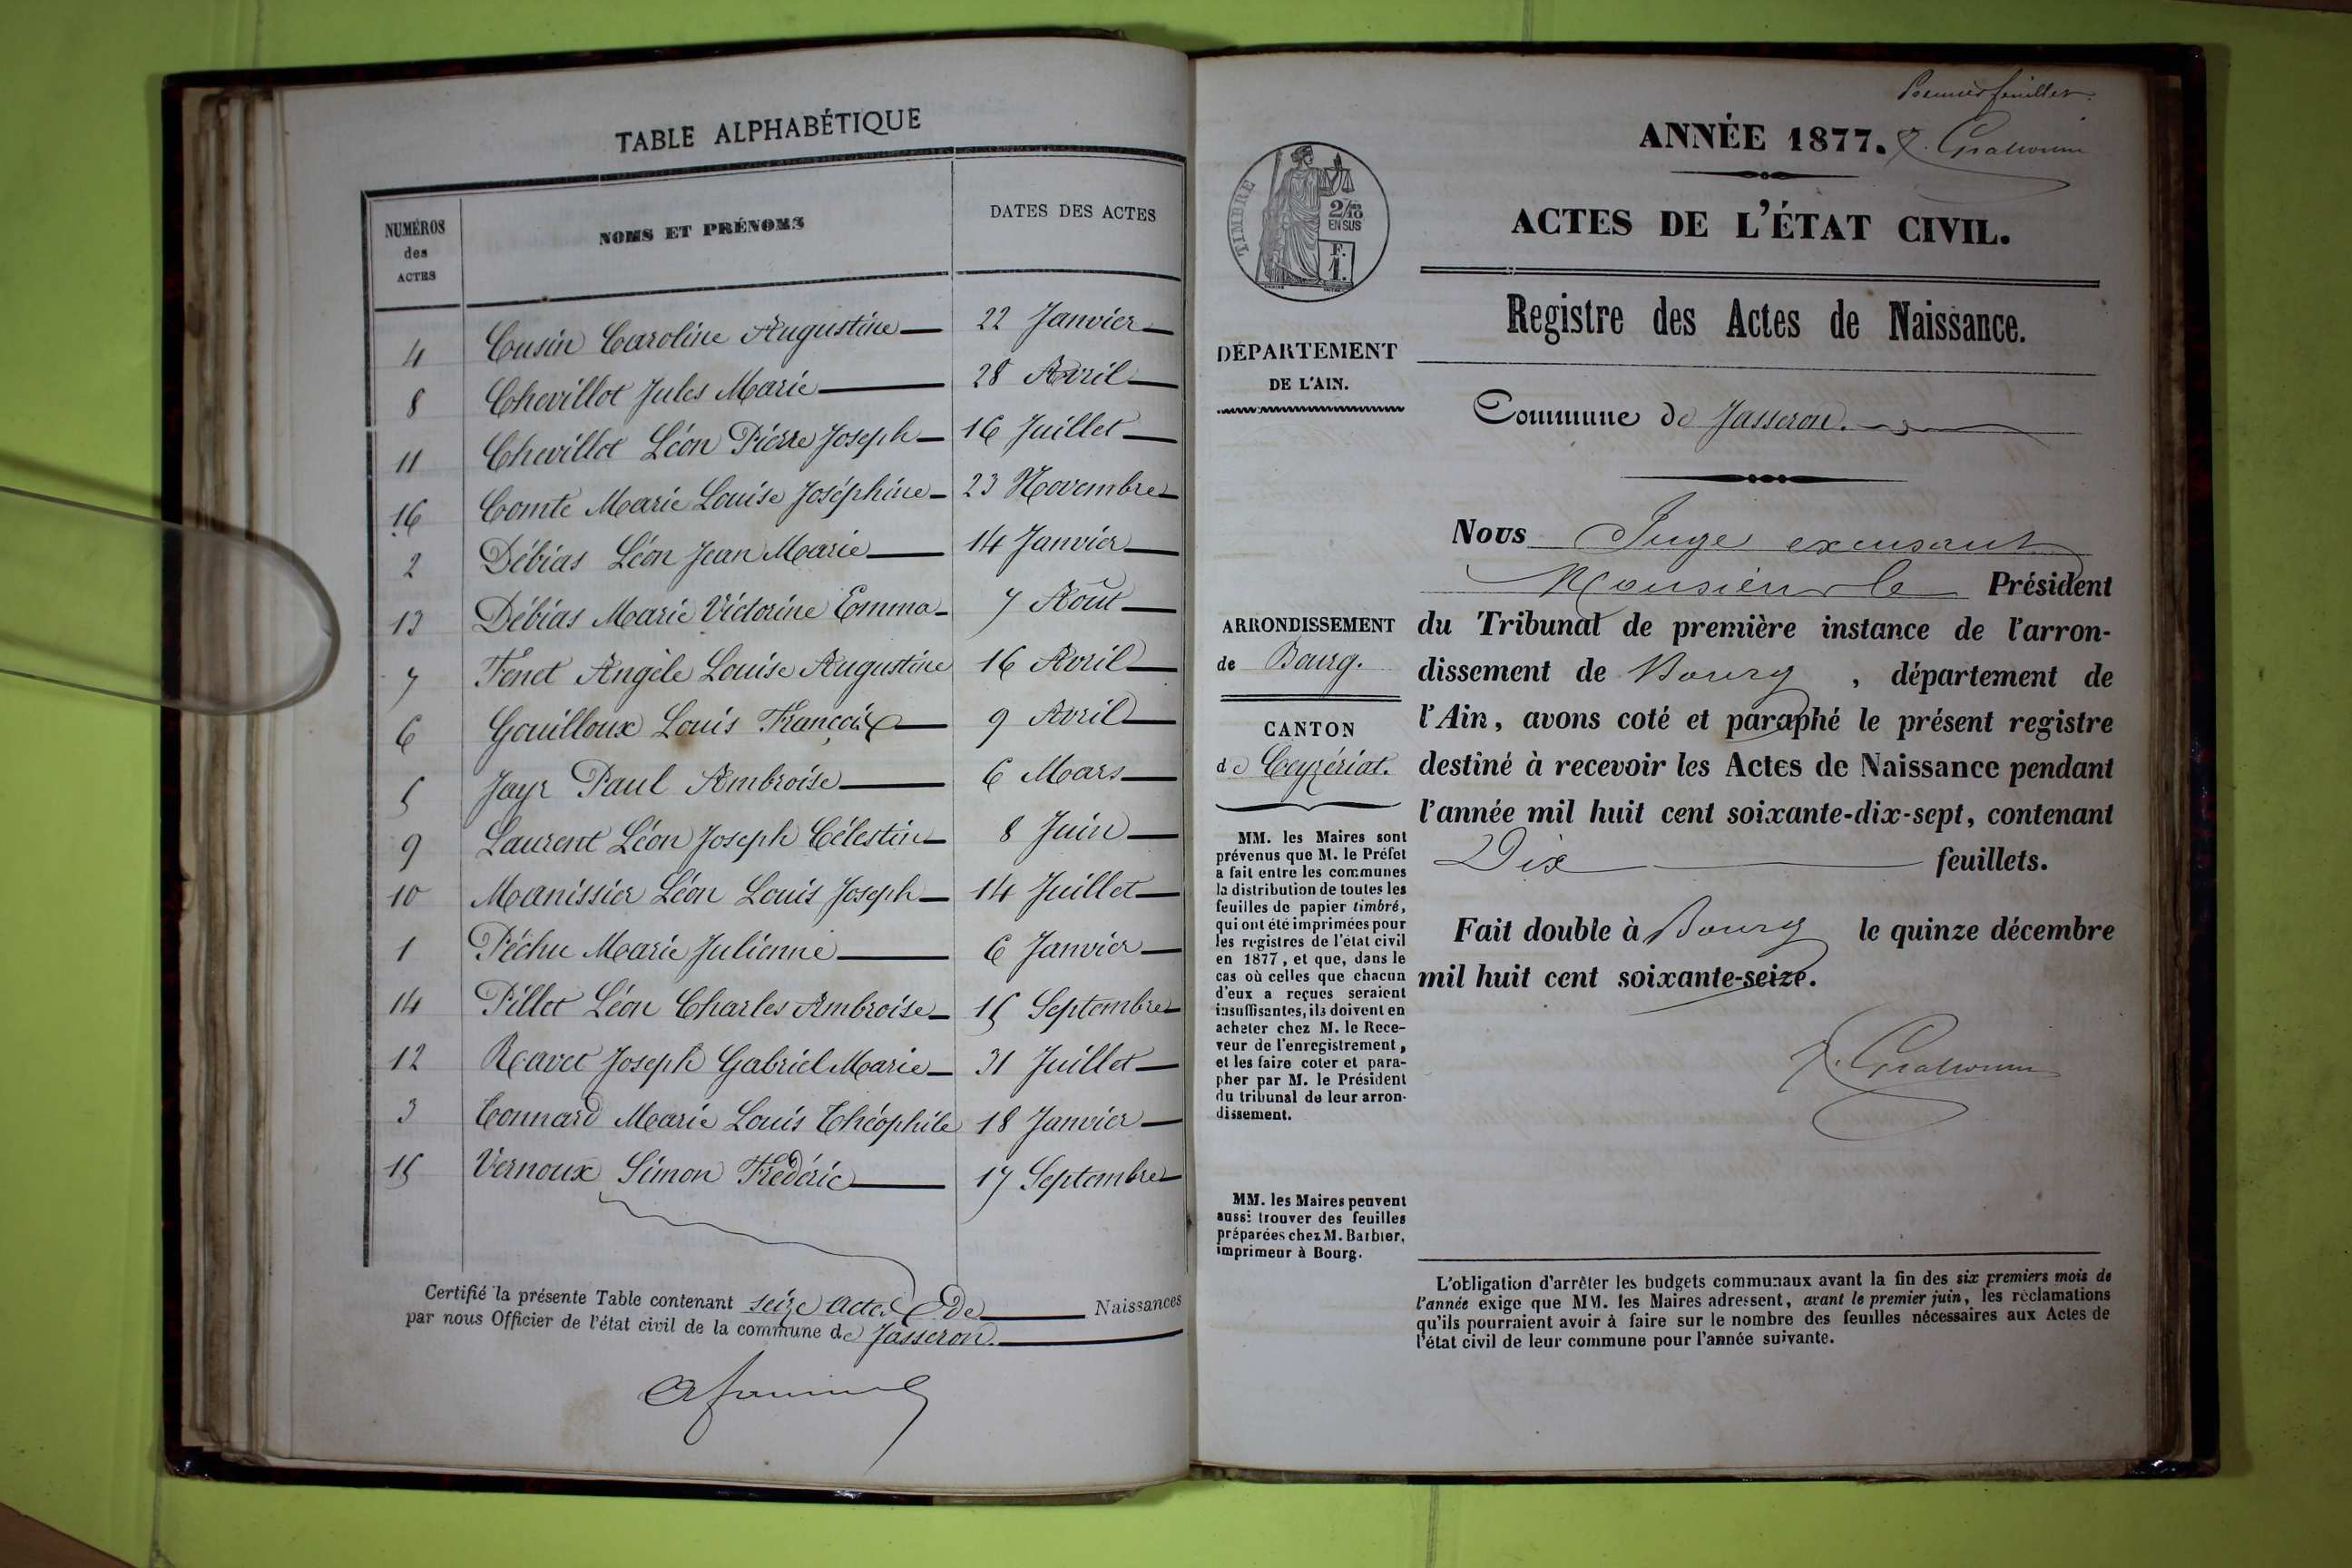 TABLE ALPHABÉTIQUE
NUMÉROS
des
ACTES
NOMS ET PRÉNOMS
DATES DES ACTES
4 Cusin Caroline Augustine 22 Janvier
8 Chevillot Jules Marie 28 Avril
11 Chevillot Léon Pierre Joseph 16 Juillet
16 Comte Marie Louise Joséphine 23 Novembre
2 Débias Léon Jean Marie 14 Janvier
13 Débias Marie Victorine Emma 7 Août
7 Fenet Angèle Louise Augustine 16 Avril
6 Gouilloux Louis François 9 Avril
5 Jayr Paul Ambroise 6 Mars
9 Laurent Léon Joseph Célestin 8 Juin
10 Manissier Léon Louis Joseph 14 Juillet
1 Péchu Marie Julienne 6 Janvier
14 Pillet Léon Charles Ambroise 15 Septembre
12 Ravet Joseph Gabriel Marie 31 Juillet
3 Tonnard Marie Louis Théophile 18 Janvier
15 Vernoux Simon Frédéric 17 Septembre
Certifié la présente Table contenant seize actes de Naissances
par nous Officier de l'état civil de la commune de Jasseron.
Premier feuillet.
ANNÉE 1877.
ACTES DE L'ÉTAT CIVIL.
TIMBRE
2/10
EN SUS
F.
1.
Registre des Actes de Naissance.
DÉPARTEMENT
DE L'AIN.
Commune de Jasseron.
Nous Juge excusant
Monsieur le Président
du Tribunal de première instance de l'arron-
dissement de Bourg, département de
l'Ain, avons coté et paraphé le présent registre
destiné à recevoir les Actes de Naissance pendant
l'année mil huit cent soixante-dix-sept, contenant
Dix feuillets.
Fait double à Bourg le quinze décembre
mil huit cent soixante-seize.
ARRONDISSEMENT
de Bourg.
CANTON
de Ceyzériat.
MM. les Maires sont
prévenus que M. le Préfet
a fait entre les communes
la distribution de toutes les
feuilles de papier timbré,
qui ont été imprimées pour
les registres de l'état civil
en 1877, et que, dans le
cas où celles que chacun
d'eux a reçues seraient
insuffisantes, ils doivent en
acheter chez M. le Rece-
veur de l'enregistrement,
et les faire coter et para-
pher par M. le Président
du tribunal de leur arron-
dissement.
MM. les Maires peuvent
aussi trouver des feuilles
préparées chez M. Barbier,
imprimeur à Bourg.
L'obligation d'arrêter les budgets communaux avant la fin des six premiers mois de
l'année exige que MM. les Maires adressent, avant le premier juin, les réclamations
qu'ils pourraient avoir à faire sur le nombre des feuilles nécessaires aux Actes de
l'état civil de leur commune pour l'année suivante.